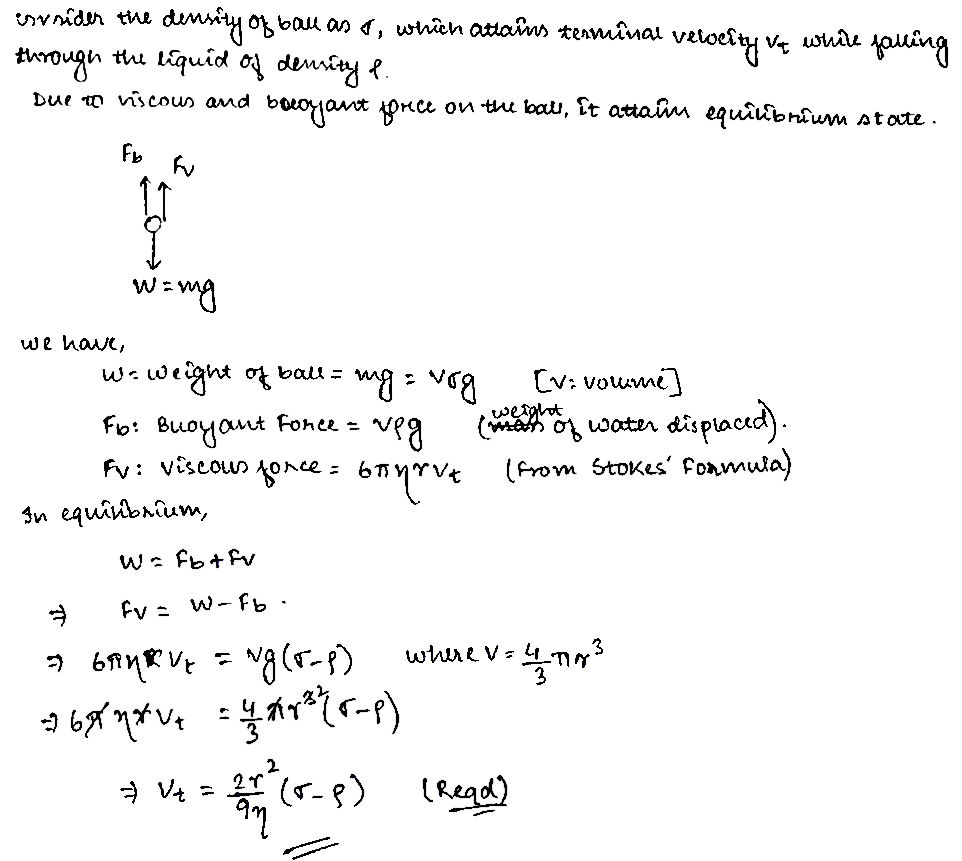 consider the density of ball as σ, which attains terminal velocity Vt while falling
through the liquid of density ρ.
Due to viscous and buoyant force on the ball, it attains equilibrium state.
Fb Fv
W = mg
we have,
W = Weight of ball = mg = Vσg [V: volume]
Fb: Buoyant Force = Vρg (weight of water displaced).
Fv: Viscous force = 6πηrVt (From Stokes' Formula)
In equilibrium,
W = Fb + Fv
⇒ Fv = W - Fb.
⇒ 6πηr Vt = Vg(σ-ρ) where V = 4/3 πr³
⇒ 6πηr Vt = 4/3 πr³ ² (σ-ρ)
⇒ Vt = 2r²/9η (σ-ρ) (Reqd)